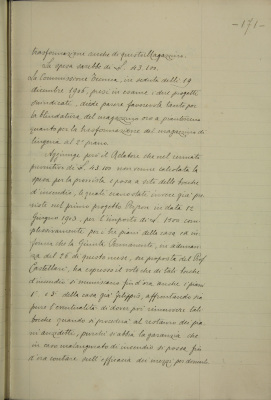 -171-
trasformazione anche di questo Magazzino.
La spesa sarebbe di L. 43.000.
La Commissione Tecnica, in seduta delli 19
dicembre 1906, presi in esame i due progetti
suindicati, diede parere favorevole tanto per
la blindatura del magazzino ora a pianterreno
quanto per la trasformazione del magazzino di
lingeria al 2° piano.
Aggiunge però il Relatore che nel
preventivo di L. 43.000 non venne calcolata la
spesa per la provvista e posa a sito delle bocche
d'incendio, le quali erano state invece già
viste nel primo progetto in data 12
Giugno 1903, per l'importo di L. 1500 com-
plessivamente per i tre piani della casa ed in-
forma che la Giunta Permanente, in adunan-
za del 26 di questo mese, su proposta del
Castellari, ha espresso il voto che di tali bocche
d'incendio si muniscano fin d'ora anche i piani
1° e 3° della casa già Filippi, affrontando sia
pure l'eventualità di dover poi rimuovere tali
bocche quando si procederà al restauro dei pia-
ni anzidetti, purchè si abbia la garanzia che
in caso malaugurato di incendio si possa fin
d'ora contare sull'efficacia dei mezzi per domarlo